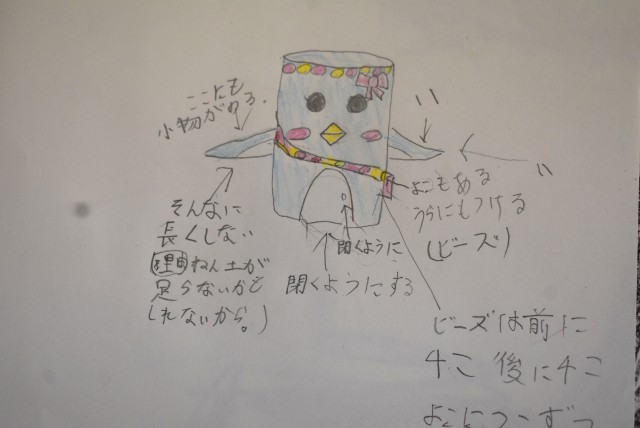 ここにも
小物がのる。
〃
〃
そんなに
長くしない
理由 ねん土が
足らないかも
しれないから。)
開くように
開くようにする
よこもある
うらにもつける
(ビーズ)
ビーズは前に
4こ 後に4こ
よこに一つずつ